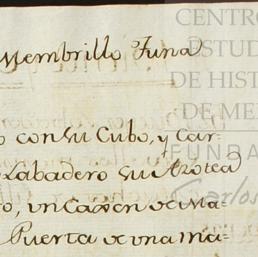 Membrillo Tuna
CENTRO
ESTUD
DE HIST
DE ME
FUNDA
Carlos
o con su Cubo, y Car-
Labadero su Azotea
ro, un Caxon de Ma-
Puerta de una ma-